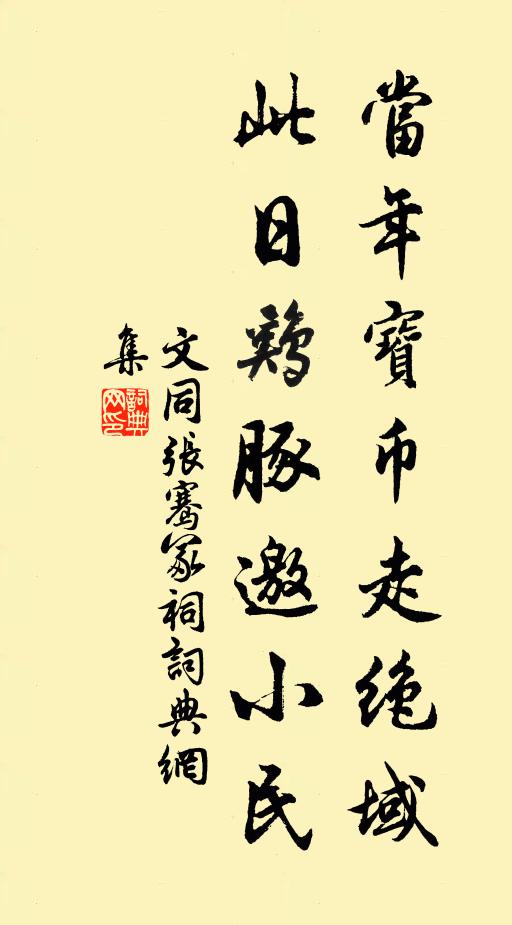 當年寶币走绝域
此日鷄豚邀小民
文同張騫冢祠詞典網
集
詞典
网印